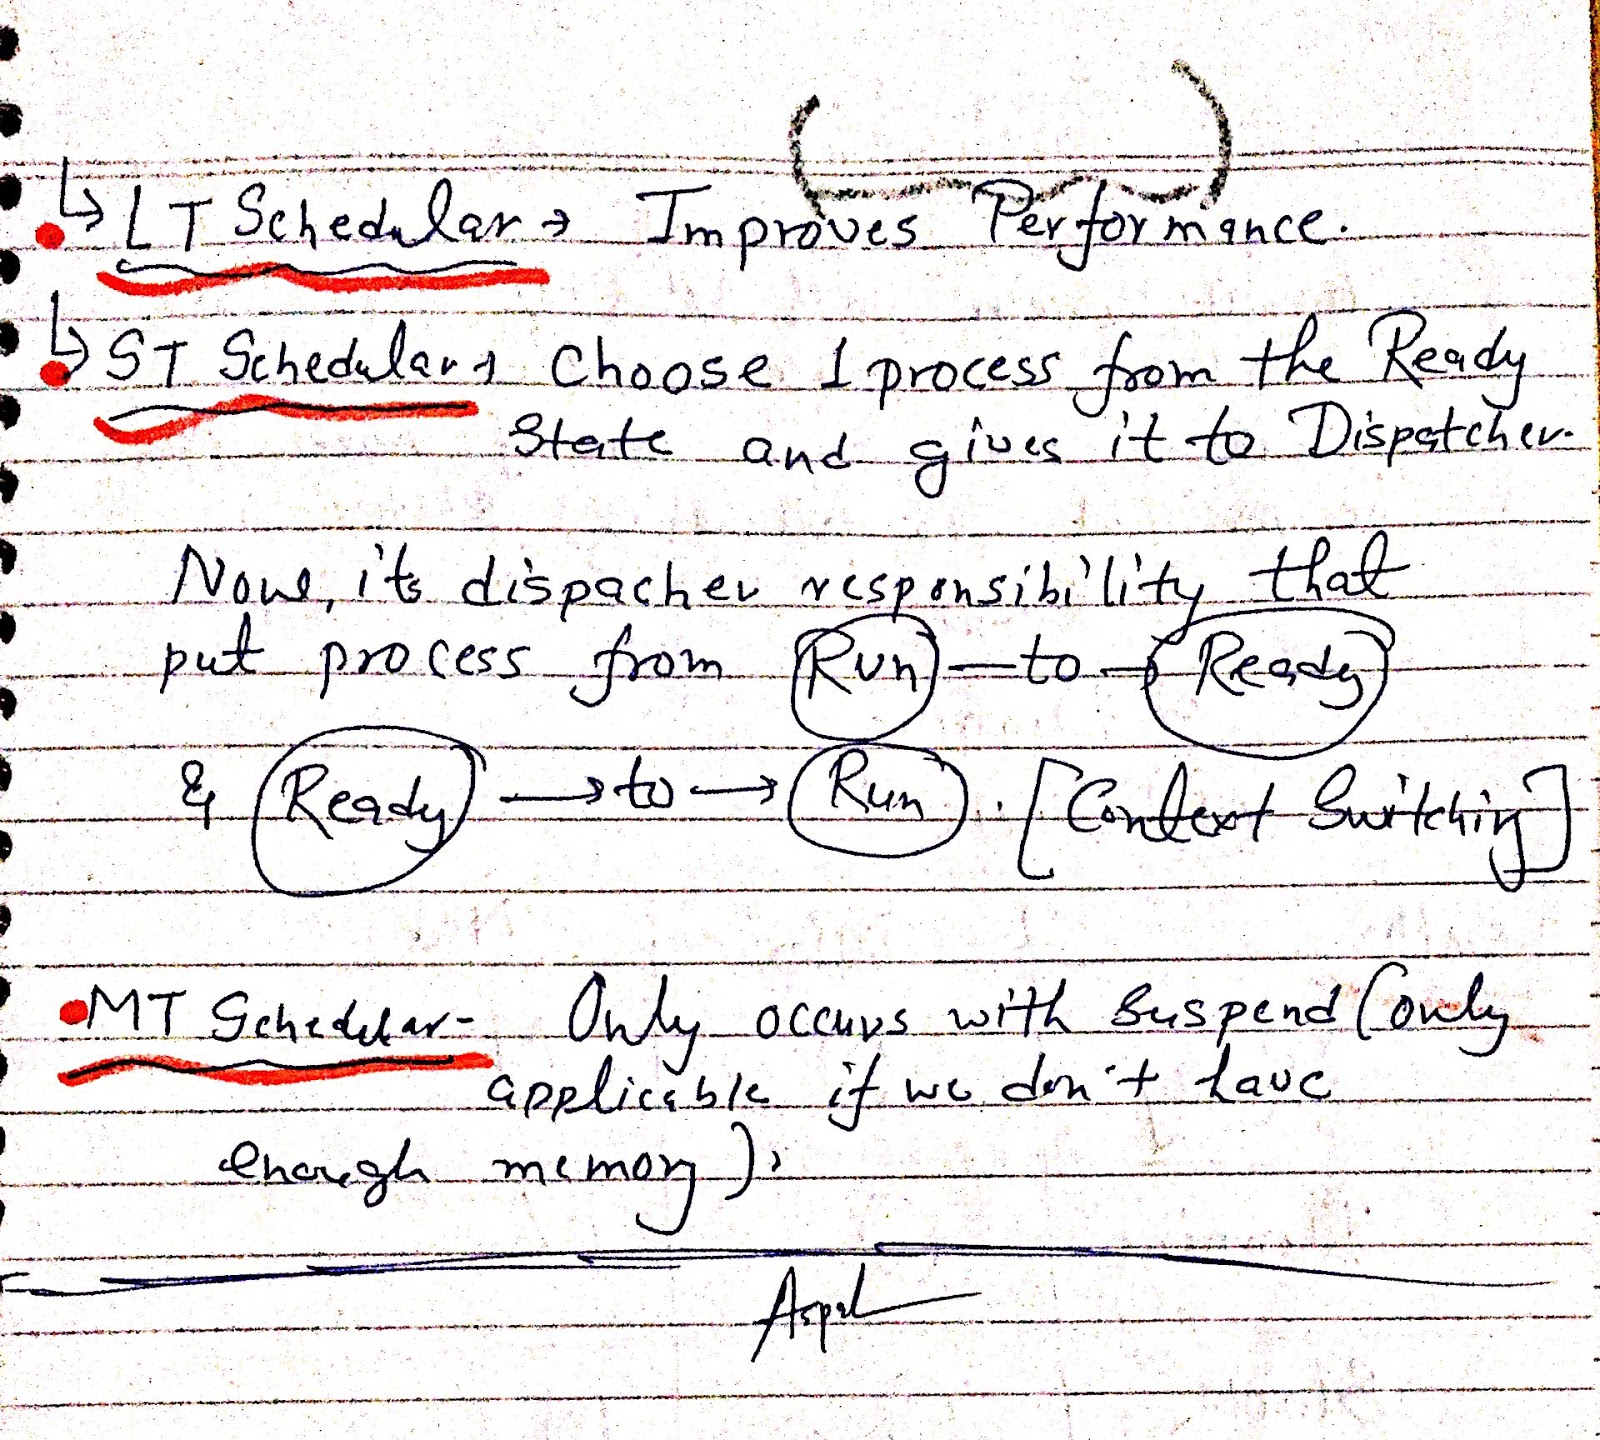 ↳ LT Schedular → Improves Performance.
↳ ST Schedular → Choose 1 process from the Ready
State and gives it to Dispatcher.
Now, its dispacher responsibility that
put process from Run — to → Ready
& Ready → to → Run. [Context Switching]
• MT Schedular - Only occurs with Suspend (only
applicable if we don't have
enough memory).